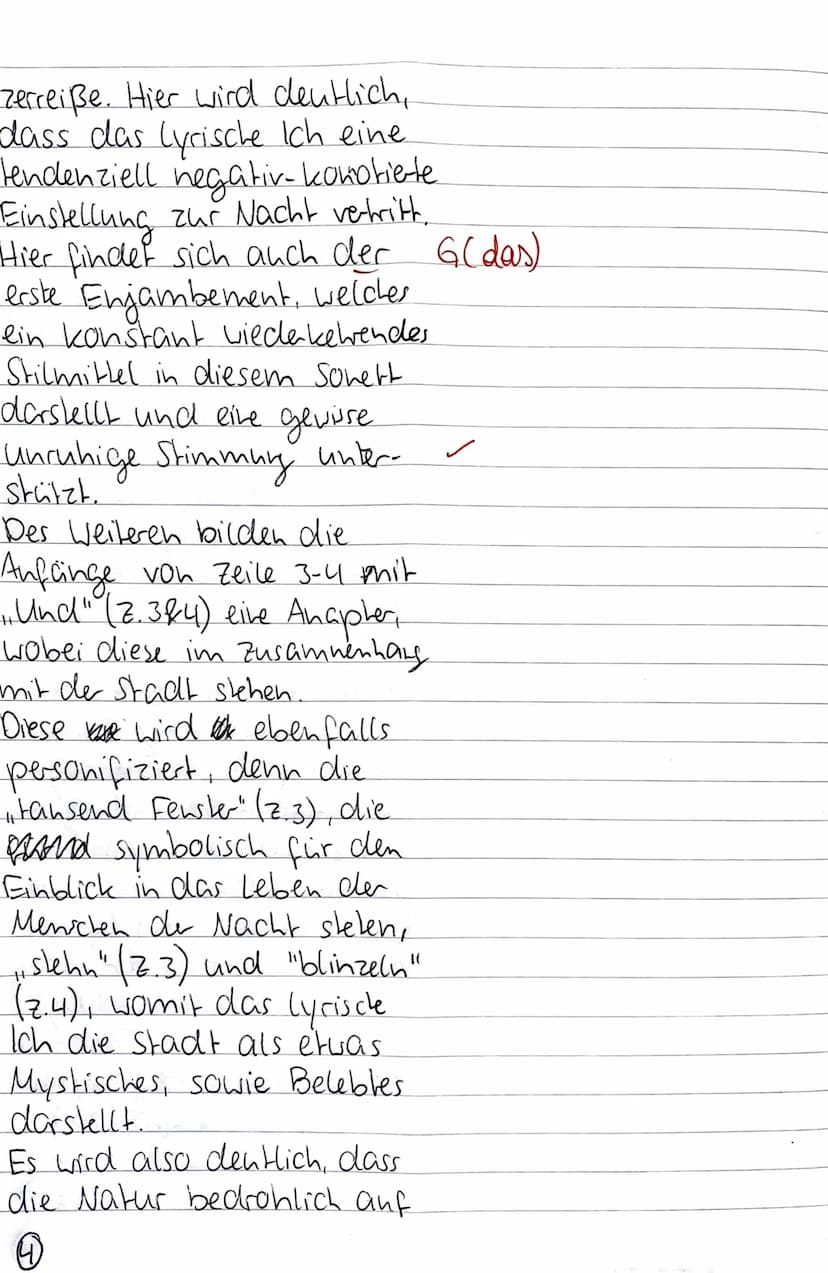 zerreiße. Hier wird deutlich,
dass das lyrische Ich eine
tendenziell negativ-konotierte
Einstellung zur Nacht vertritt.
Hier findet sich auch der G(das)
erste Enjambement, welches
ein konstant wiederkehrendes
Stilmittel in diesem Sonett
darstellt und eine gewisse
unruhige Stimmung unter-
stützt.
Des Weiteren bilden die
Anfänge von Zeile 3-4 mit
„Und" (Z.3&4) eine Anapher,
wobei diese im Zusammenhang
mit der Stadt stehen.
Diese wird ebenfalls
personifiziert, denn die
„tausend Fenster" (Z.3), die
symbolisch für den
Einblick in das Leben der
Menschen der Nacht stehen,
„stehn" (Z.3) und "blinzeln"
(Z.4), womit das lyrische
Ich die Stadt als etwas
Mystisches, sowie Belebtes
darstellt.
Es wird also deutlich, dass
die Natur bedrohlich auf
4